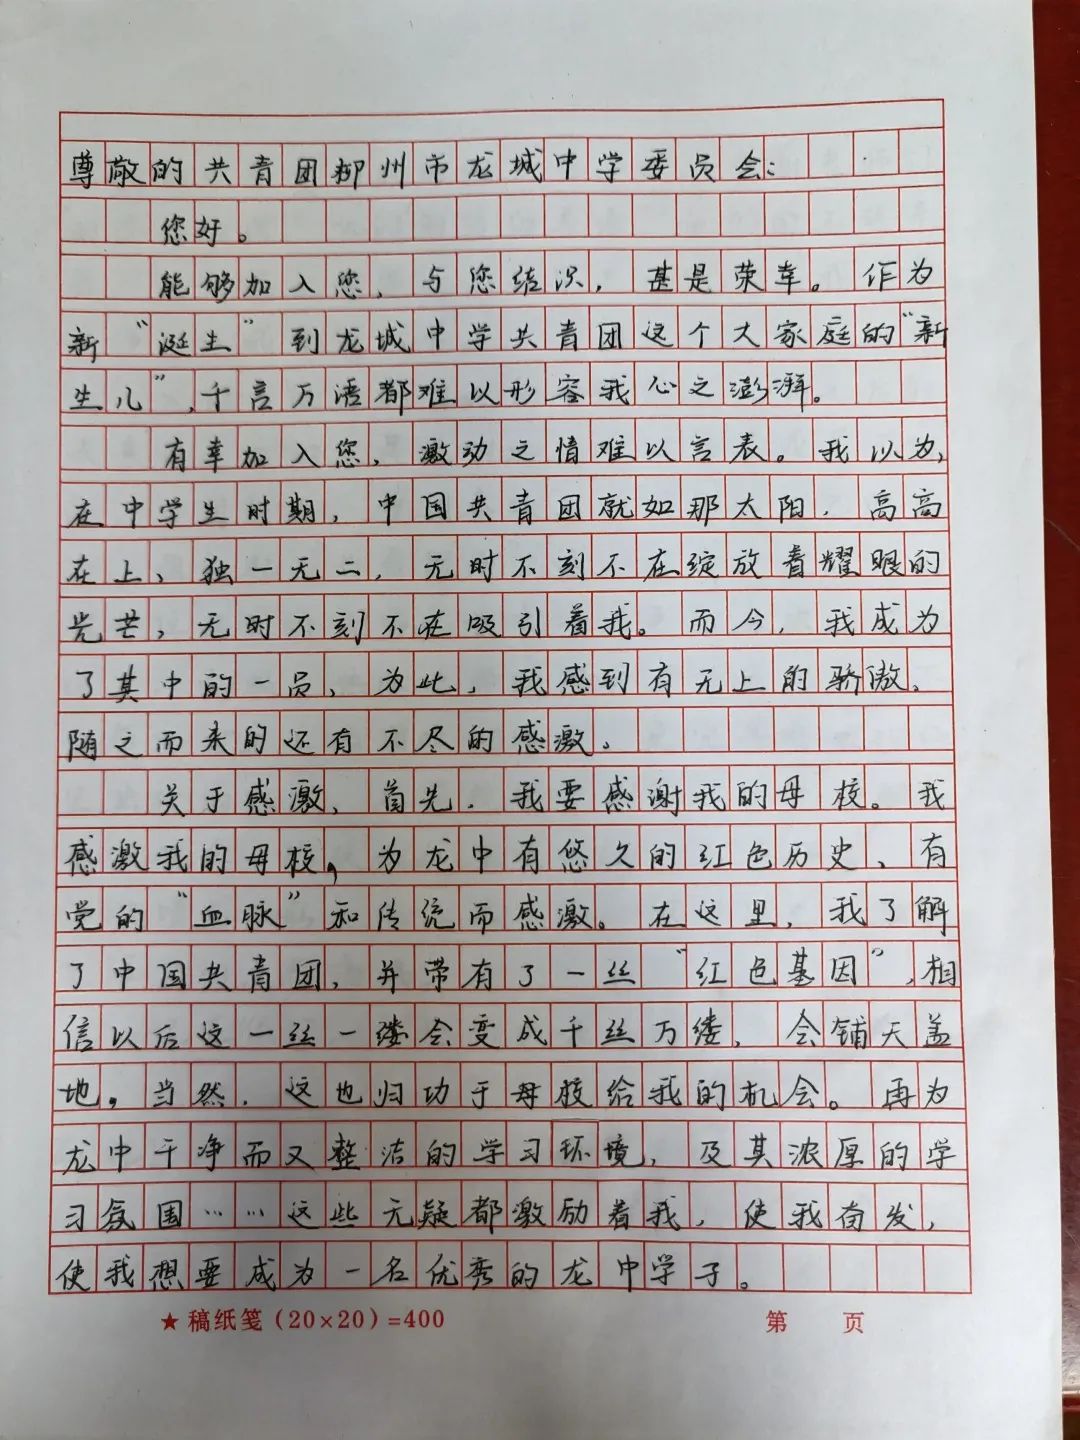 尊敬的共青团柳州市龙城中学委员会:
您好。
能够加入您,与您结识,甚是荣幸。作为
新“诞生”到龙城中学共青团这个大家庭的“新
生儿”,千言万语都难以形容我心之澎湃。
有幸加入您,激动之情难以言表。我以为,
在中学生时期,中国共青团就如那太阳,高高
在上、独一无二,无时不刻不在绽放着耀眼的
光芒,无时不刻不在吸引着我。而今,我成为
了其中的一员,为此,我感到有无上的骄傲,
随之而来的还有不尽的感激。
关于感激,首先,我要感谢我的母校。我
感激我的母校,为龙中有悠久的红色历史、有
党的“血脉”和传统而感激。在这里,我了解
了中国共青团,并带有了一丝“红色基因”,相
信以后这一丝一缕会变成千丝万缕,会铺天盖
地。当然,这也归功于母校给我的机会。再为
龙中干净而又整洁的学习环境,及其浓厚的学
习氛围……这些无疑都激励着我,使我奋发,
使我想要成为一名优秀的龙中学子。
★稿纸笺(20×20)=400 第 页